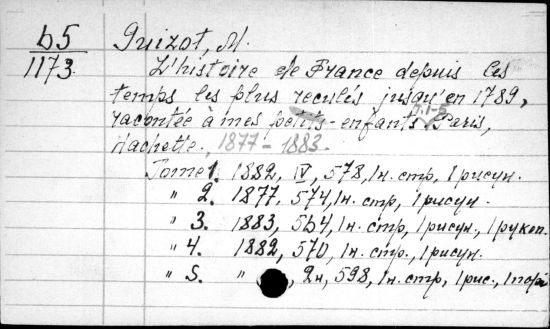 b5
1173.
Guizot, M.
L'histoire de France depuis les
temps les plus reculés jusqu'en 1789,
racontée a mes petits-enfants. T. 1-5 Paris,
Hachette., 1877-1883.
Tome 1. 1882, IV, 578, 1н. стр, 1 рисун.
" 2. 1877, 574, 1н. стр, 1 рисун.
" 3. 1883, 564, 1н. стр, 1 рисун., 1 рукоп.
" 4. 1882, 570, 1н. стр., 1 рисун.
" 5. " , 2н, 598, 1н. стр, 1 рис.,